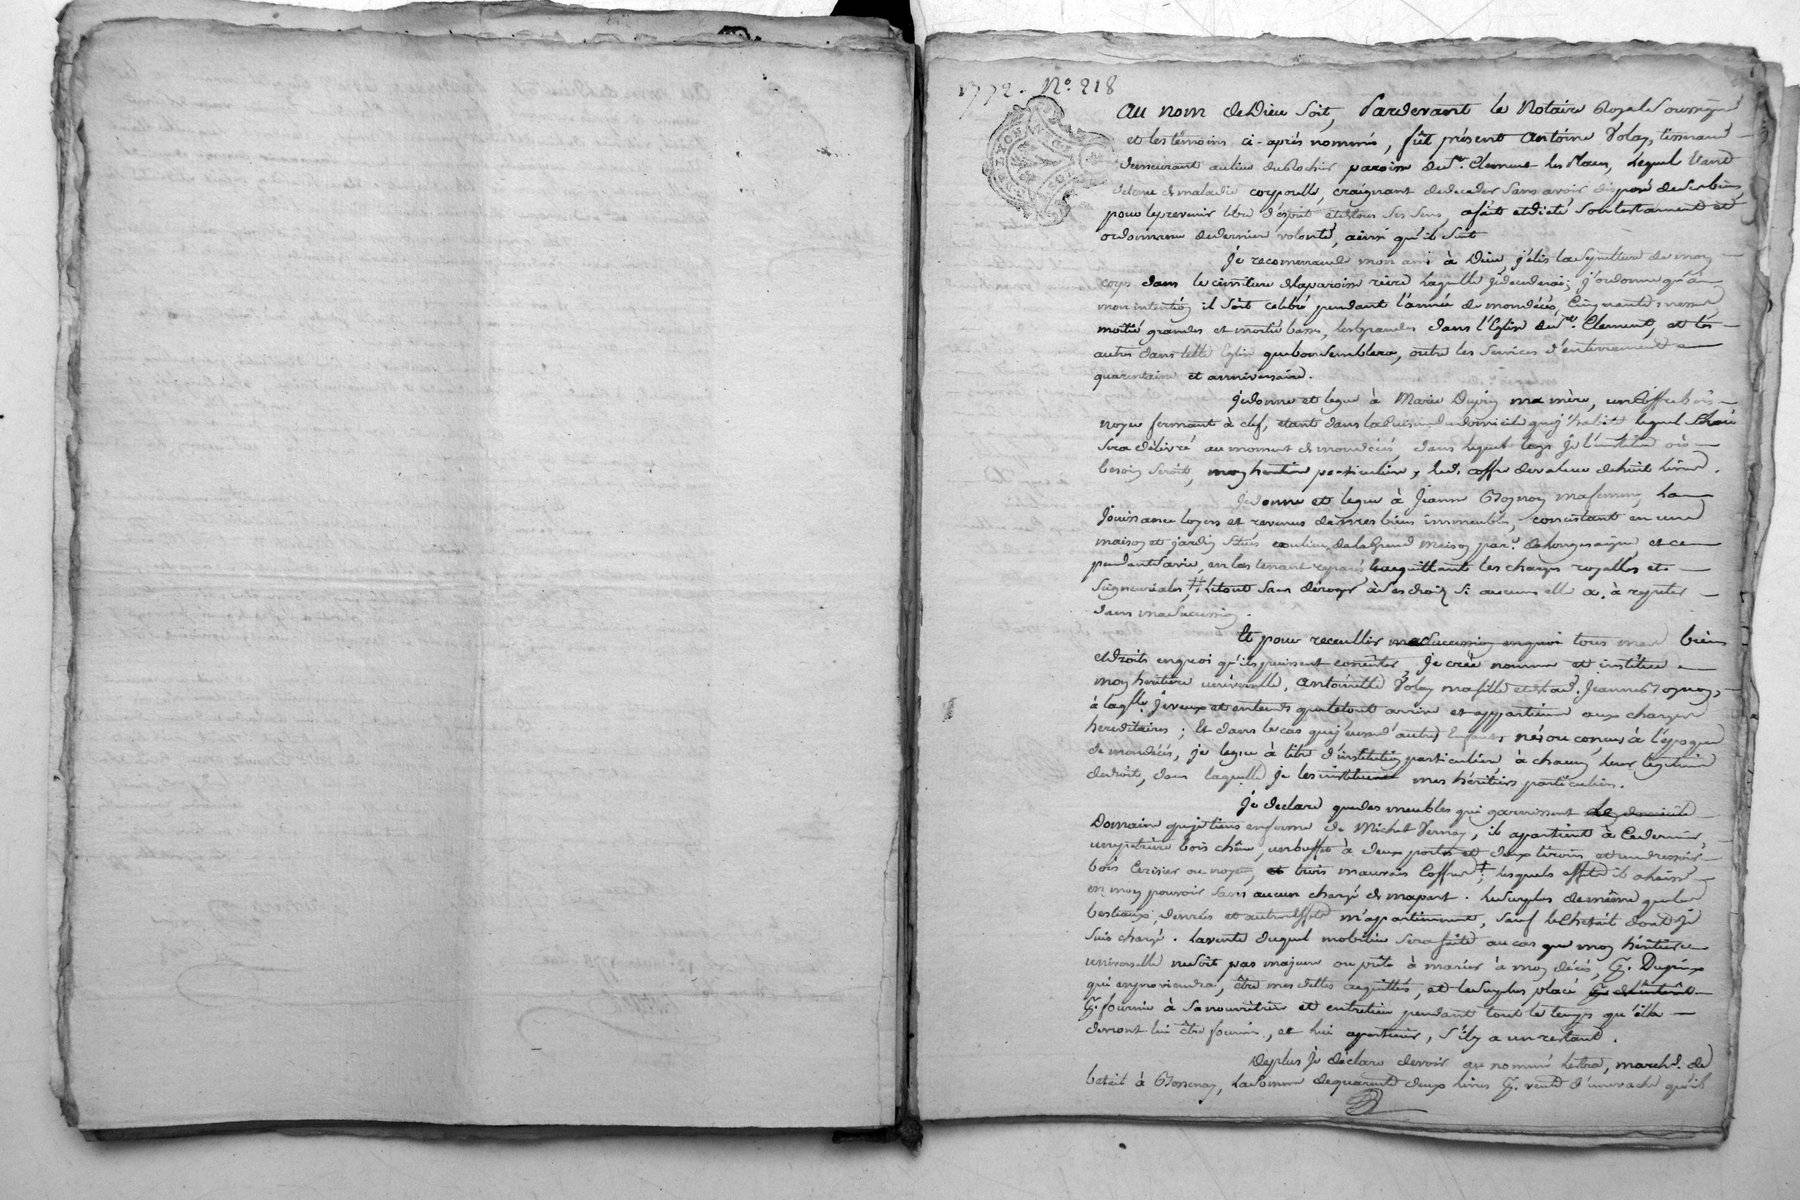 1772. N.º 218
Au nom de Dieu soit, Pardevant le Notaire Royal Soussigné
et les témoins ci-après nommés, fût présent Antoine Volay tisserand
demeurant au lieu du paroisse de St. Clement les Places, Lequel
detenu de maladie corporelle, craignant de deceder sans avoir disposé de ses biens
pour le prevenir libre d'esprit et de tous ses sens, a fait et dicté son testament et
ordonnance de derniere volonté, ainsi qu'il suit
Je recommande mon ame à Dieu j'élis la sepulture de mon
corps dans le cimitiere de la paroisse riere laquelle je decederai; j'ordonne qu'à
mon intention il soit celebré pendant l'année de mon décés, Cinquante messes
moitié grandes et moitié basses, les grandes dans l'Eglise de St. Clement, et les
autres dans telle Eglise que bon semblera, outre les services d'enterrement
quarantaine et anniversaire.
Je donne et legue à Marie Dupin ma mère, un Coffre bois
noyer fermant à clef, etant dans la cuisine du domicile que j'habite lequel
sera délivré au moment de mon décés, dans lequel legs je l'institue où
besoin seroit, mon heritiere particuliere, led. coffre de valeur de huit livres.
Je donne et legue à Jeanne ma femme, La
Jouissance loyers et revenus de mes biens immeubles, consistant en une
maison et jardin situés au lieu de la Grand Maison parr. de Longessaigne, et ce
pendant sa vie, en les tenant reparés & acquittant les charges royalles et
Seigneuriales, # le tout sans déroger à ses droits si aucuns elle a. à repeter
dans ma succession.
Et pour receuillir ma succession en quoi tous mes biens
& droits en quoi qu'ils puissent consister, Je crée nomme et institue
mon heritiere universelle, Antoinette Volay ma fille et de lad. Jeanne
à laqlle. je veux et entends que le tout arrive et appartienne aux charges
hereditaires; Et dans le cas que j'eusse d'autres Enfants nés ou conçus à l'époque
de mon décés, je legue à titre d'institution particuliere, à chacun leur legitime
de droit, dans laquelle je les institue mes héritiers particuliers.
Je declare que des meubles qui garnissent
Domaine que je tiens en ferme de Michel Vernay, il apartient à ce dernier,
une petriere bois chêne, un buffet à deux portes et deux tiroirs et un dressoir
bois Cerisier ou noyer, trois mauvais Coffres; lesquels effets il a laissé
en mon pouvoir sans aucun charge de ma part. Le surplus de même que les
bestiaux denrées et autres effets m'appartiennent, sauf le Cheteil dont je
suis chargé. La vente duquel mobilier sera faite au cas que mon héritiere
universelle ne soit pas majeure ou prête à marier à mon décés, pr. Du prix
qui en proviendra, être mes dettes acquittées, et le surplus placé
pr. fournir à sa nourriture et entretien pendant tout le temps qu'elle
devront lui être fournis, et lui apartenir, s'il y a un restant.
De plus je déclare devoir au nommé march.d de
betail à la somme de quarante deux livres pr. vente d'une vache qu'il